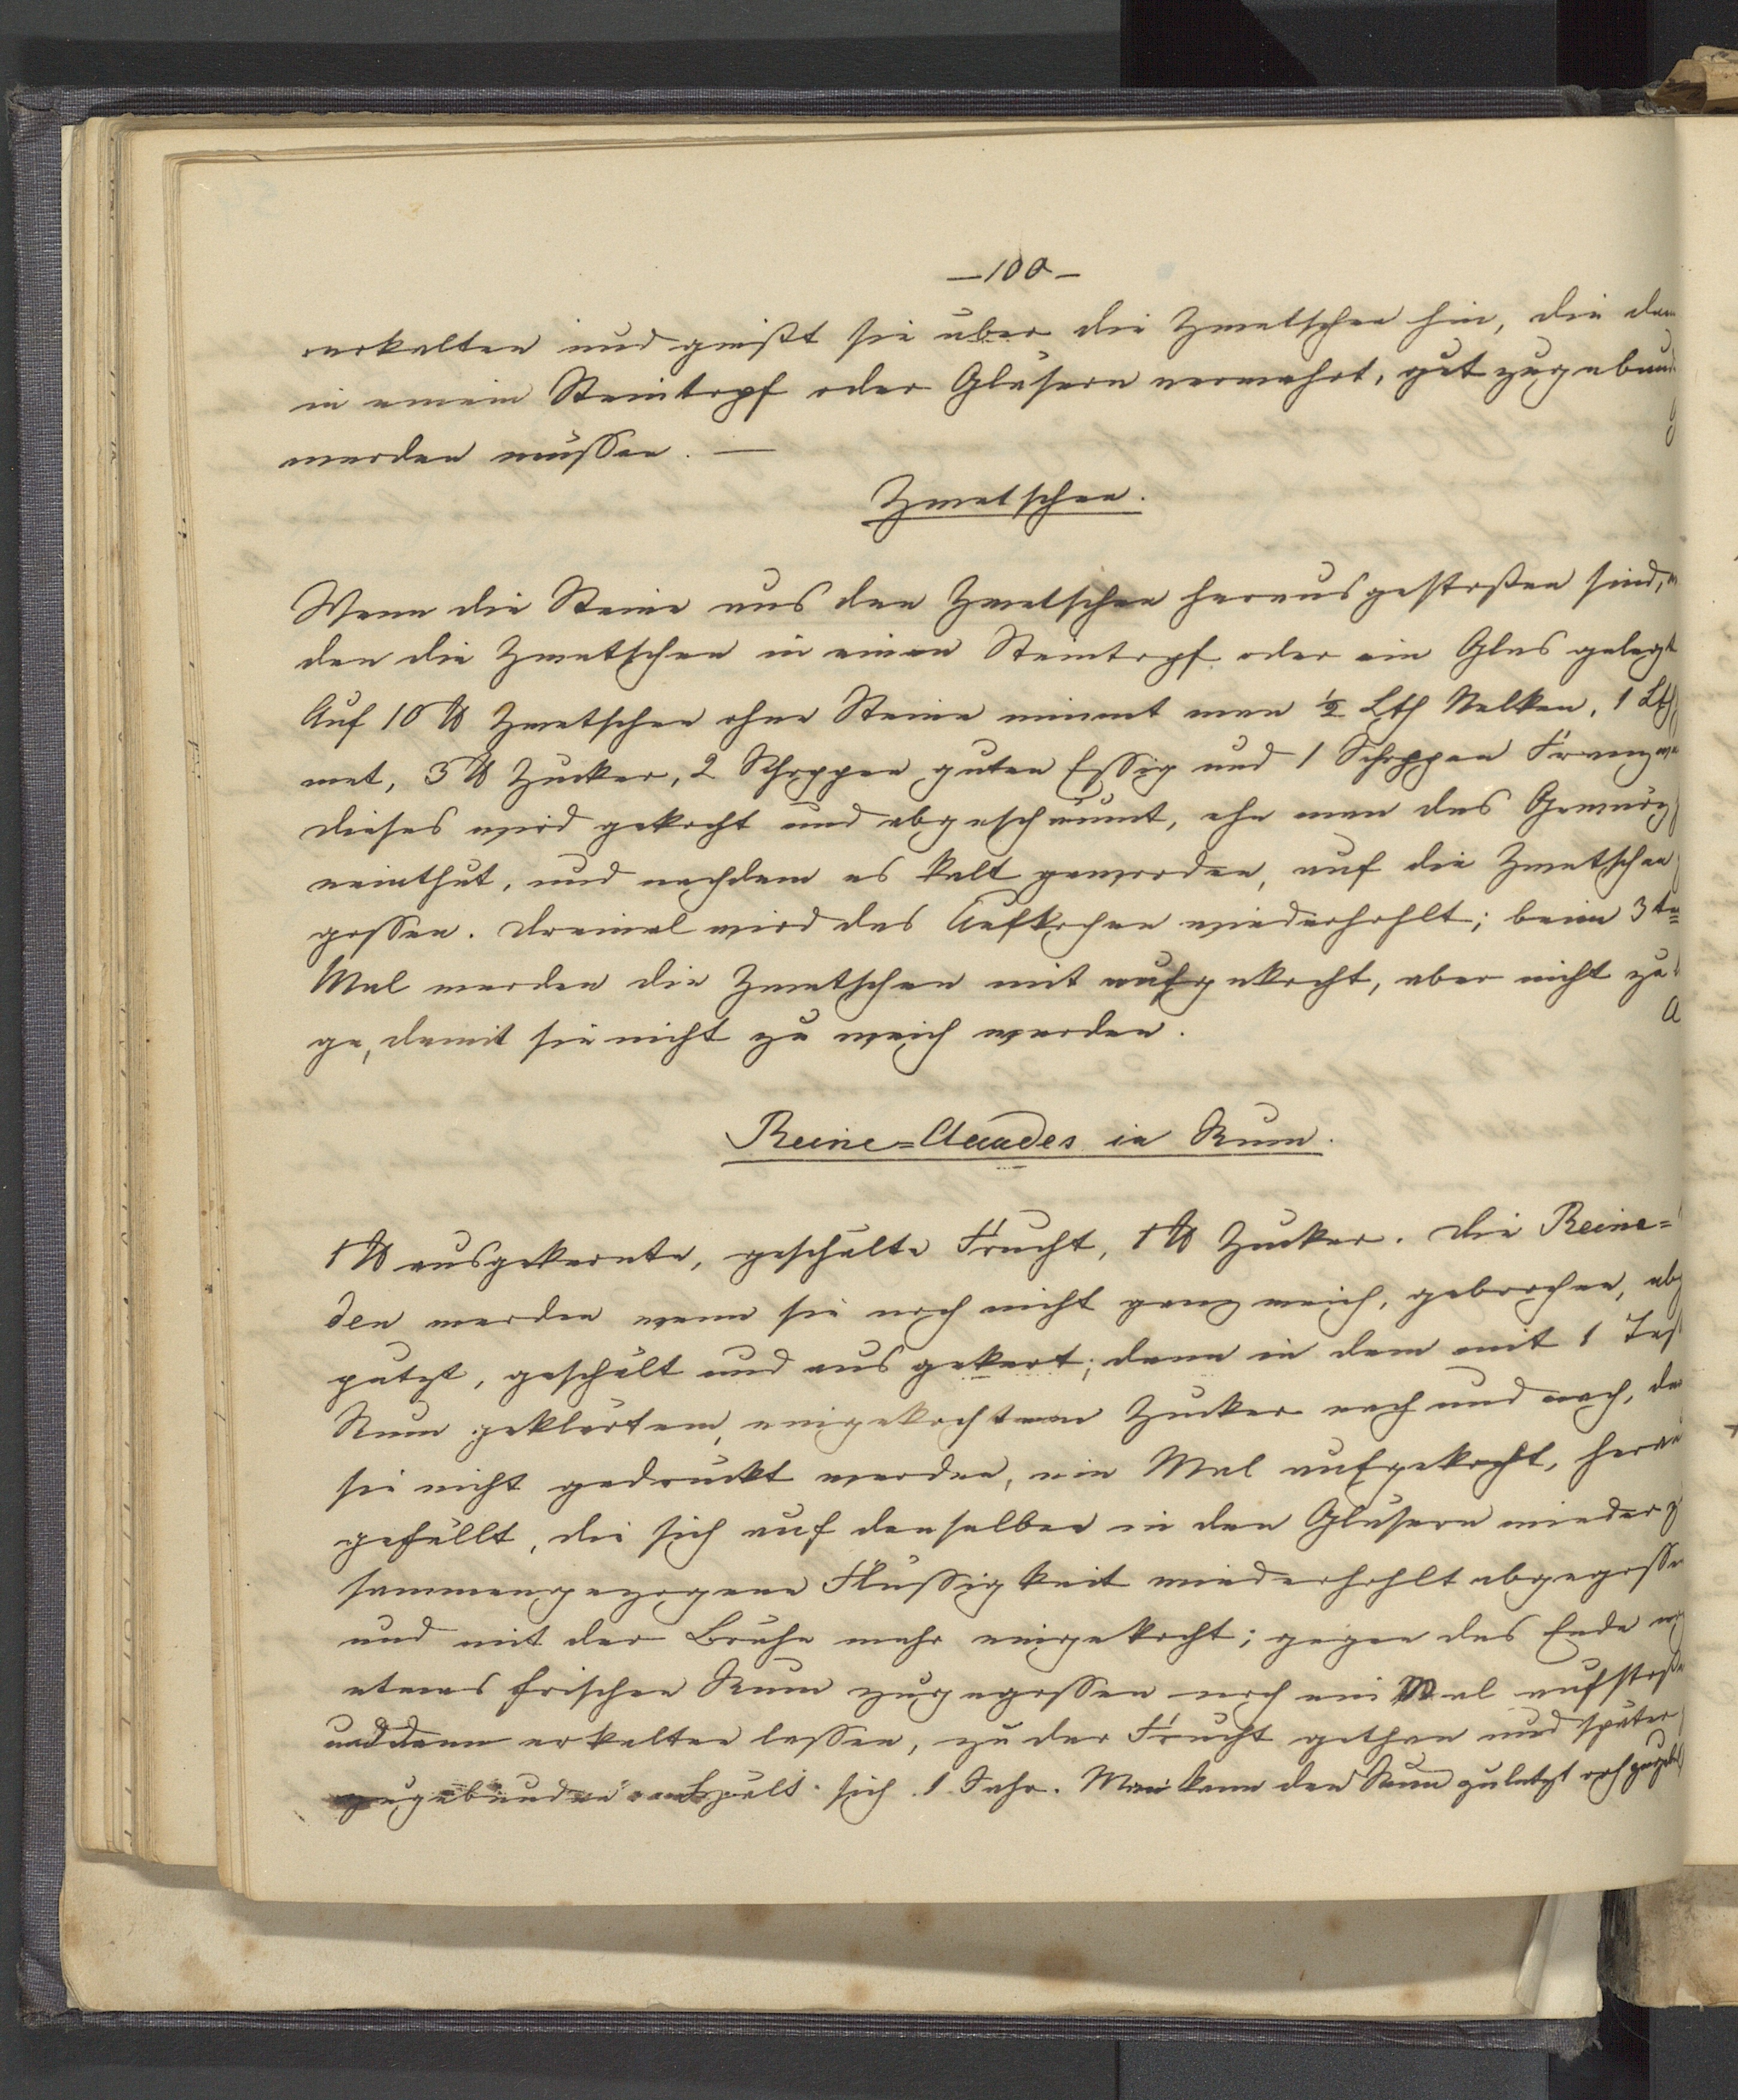 —100—
verkalten und gießt sie über die Zwetschen hin, die dan
in einem Steintopf oder Gläsern verwahrt, gut zugebund
werden müssen. —
Zwetschen.
Wenn die Steine aus den Zwetschen herausgestoßen sind,
den die Zwetschen in einen Steintopf oder ein Glas gelegt
Auf 10 ℔ Zwetschen ohne Steine nimmt man ½ Lth Nelken, 1 Lth
met, 3 ℔ Zucker, 2 Schoppen guten Essig und 1 Schoppen Franzwe
dieses wird gekocht und abgeschäumt, ehe man das Gewürz
reinthut, und nachdem es kalt geworden, auf die Zwetschen
gossen. Dreimal wird das Aufkochen wiederhohlt; beim 3ten
Mal werden die Zwetschen mit aufgekocht, aber nicht zu
ge, damit sie nicht zu weich werden.
Reine=Claudes in Rum.
1 ℔ ausgekernte, geschälte Frucht, 1 ℔ Zucker. Die Reine=
den werden wenn sie noch nicht ganz weich, gebrochen, abg
putzt, geschält und ausgekert; dann in dem mit 1 Tas
Rum geklärtem, eingekochtem Zucker nach und nach, da
sie nicht gedrückt werden, ein Mal aufgekocht, herau
gefüllt, die sich auf denselben in den Gläsern wieder z
sammengezogene Flüssigkeit wiederhohlt abgegosse
und mit der Brühe mehr eingekocht; gegen das Ende
etwas frischen Rum zugegossen noch ein Mal aufstoße
und dann erkalten lassen, zu der Frucht gethan und später
zugebunden hält sich 1 Jahr. Man kann den Rum zuletzt noch